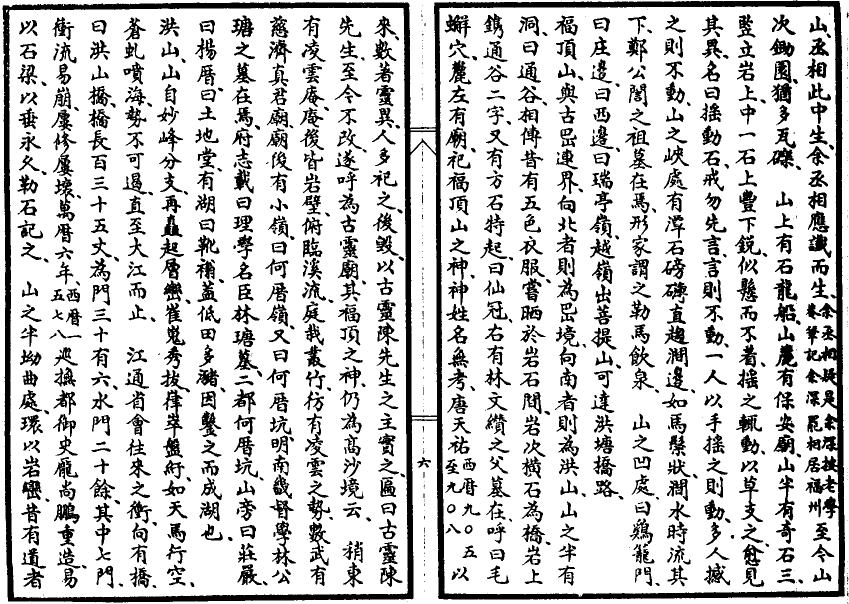 山、丞相此中生、余丞相應讖而生、余丞相疑是余深按老學菴筆記余深罷相居福州至今山
次鋤園、猶多瓦礫、山上有石龍船、山麓有保安廟、山半有奇石三、
竪立岩上、中一石上豐下銳、似懸而不着、搖之輒動、以草支之愈見
其異、名曰搖動石、戒勿先言、言則不動、一人以手搖之則動、多人撼
之則不動、山之峽處有潭石磅礴、直趨澗邊、如馬鬃狀、澗水時流其
下、鄭公誾之祖墓在焉、形家謂之勒馬飲泉、山之凹處曰鷄籠門、
曰庄邊、曰西邊、曰瑞亭嶺、越嶺出菩提山、可達洪塘橋路、
福頂山、與古岊連界、向北者則為岊境、向南者則為洪山、山之半有
洞、曰通谷、相傳昔有五色衣服、嘗晒於岩石間、岩次橫石為橋、岩上
鐫通谷二字、又有方石特起、曰仙冠、右有林文纘之父墓在、呼曰毛
蠏穴、麓左有廟、祀福頂山之神、神姓名無考、唐天祐西曆九〇五至九〇八以
來、數著靈異、人多祀之、後毀、以古靈陳先生之主實之、匾曰古靈陳
先生、至今不改、遂呼為古靈廟、其福頂之神、仍為高沙境云、稍東
有凌雲庵、庵後皆岩壁、俯臨溪流、庭栽叢竹、枋有凌雲之勢、數武有
慈濟真君廟、廟後有小嶺、曰何厝嶺、又曰何厝坑、明南畿督學林公
瑭之墓在焉、府志載曰理學名臣林瑭墓、二都何厝坑、山旁曰莊嚴、
曰楊厝、曰土地堂、有湖曰靴䩺、蓋低田多豬、因鑿之而成湖也、
洪山、山自妙峰分支、再矗起層巒、崔嵬秀拔、嵂崒盤紆、如天馬行空、
蒼虬噴海、勢不可遏、直至大江而止、江通省會往來之衝、向有橋、
曰洪山橋、橋長百三十五丈、為門三十有六、水門二十餘、其中七門、
衝流易崩、屢修屢壞、萬曆六年西曆一五七八巡撫都御史龐尚鵬重造、易
以石梁、以垂永久、勒石記之、山之半坳曲處、環以岩巒、昔有道者
六